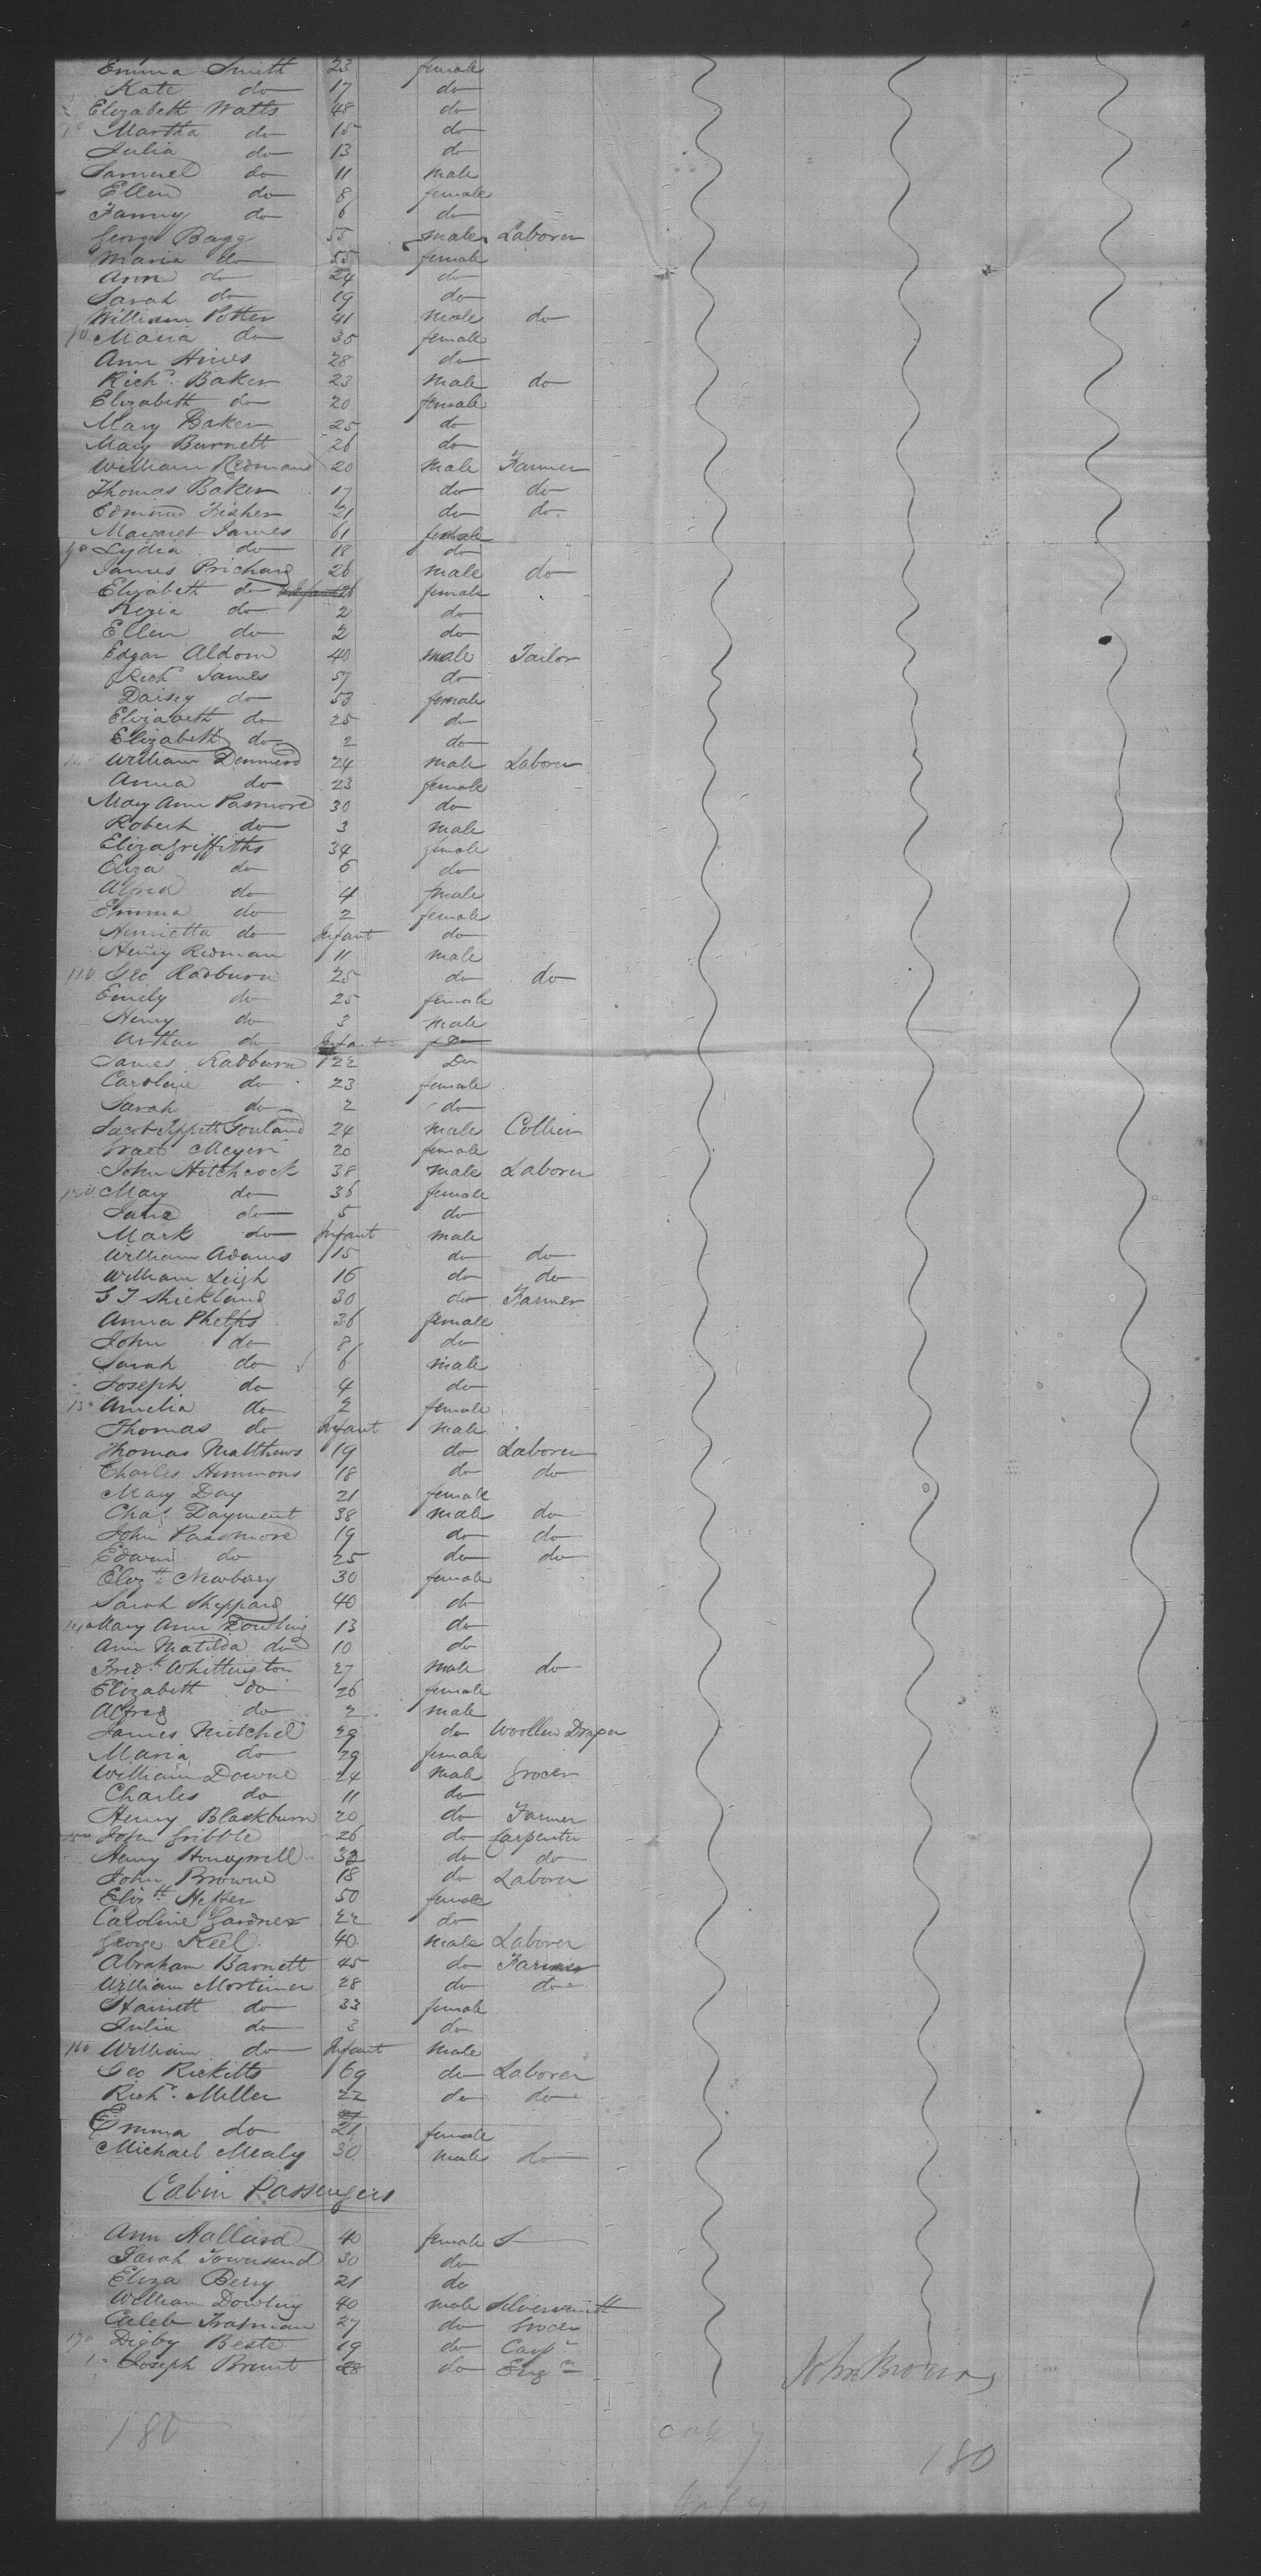 Emma Smith 23 female
Kate do 17 do
Elizabeth Watts 48 do
Martha do 15 do
Julia do 13 do
Samuel do 11 male
Ellen do 8 female
Fanny do 6 do
George Bagg 55 male Laborer
Maria do 55 female
Ann do 24 do
Sarah do 19 do
William Potter 41 male do
Maria do 35 female
Ann Hines 28 do
Richd. Baker 23 male do
Elizabeth do 20 female
Mary Baker 25 do
Mary Burnett 26 do
William Redman 20 male Farmer
Thomas Baker 17 do do
Edmund Fisher 21 do do
Margaret James 61 female
90 Lydia do 18 do
James Prichard 26 male do
Elizabeth do 26 female
Kezia do 2 do
Ellen do 2 do
Edgar Aldom 40 male Tailor
Rich James 57 do
Daisey do 53 female
Elizabeth do 25 do
Elizabeth do 2 do
William Denmead 24 male Laborer
Anna do 23 female
Mary Ann Passmore 30 do
Robert do 3 male
Eliza Griffiths 34 female
Eliza do 6 do
Alfred do 4 male
Emma do 2 female
Henrietta do Infant do
Henry Redman 11 male
110 Geo Radburn 25 do do
Emily do 25 female
Henry do 3 male
Arthur do Infant Do
James Radburn 22 Do
Caroline do 23 female
Sarah do 2 do
Jacob Tippett Gouland 24 male Collier
Meyen 20 female
John Hitchcock 38 male Laborer
120 Mary do 36 female
Jane do 5 do
Mark do Infant male
William Adams 15 do do
William Leigh 16 do do
G T Strickland 30 do Farmer
Anna Phelps 36 female
John do 8 do
Sarah do 6 male
Joseph do 4 do
130 Amelia do 2 female
Thomas do Infant male
Thomas Matthews 19 do Laborer
Charles Hemmons 18 do do
Mary Day 21 female
Chas. Dayment 38 male do
John Passmore 19 do do
Edwin do 25 do do
Elizth Newberry 30 female
Sarah Sheppard 40 do
140 Mary Ann Dowling 13 do
Ann Matilda do 10 do
Fredk Whittington 27 male do
Elizabeth do 26 female
Alfred do 2 male
James Mitchel 29 do Woollen Draper
Maria do 29 female
William Downe 24 male Grocer
Charles do 11 do
Henry Blackburn 20 do Farmer
150 John Gribble 26 do Carpenter
Henry Honeywell 32 do do
John Browne 18 do Laborer
Elizth Heffer 50 female
Caroline Gardner 22 do
George Keel 40 male Laborer
Abraham Barnett 45 do Farmer
William Mortimer 28 do do
Harriett do 33 female
Julia do 3 do
160 William do Infant male
Geo Ricketts 69 do Laborer
Richd. Miller 22 do do
Emma do 21 female
Michael Mealy 30 male do
Cabin Passengers
Ann Hallard 40 female S
Sarah Townsend 30 do
Eliza Berry 21 do
William Dowling 40 male Silversmith
Caleb Tratman 27 do Grocer
170 Digby Beste 19 do Carpr
Joseph Brunt 28 do Engr
John Brown
180
180